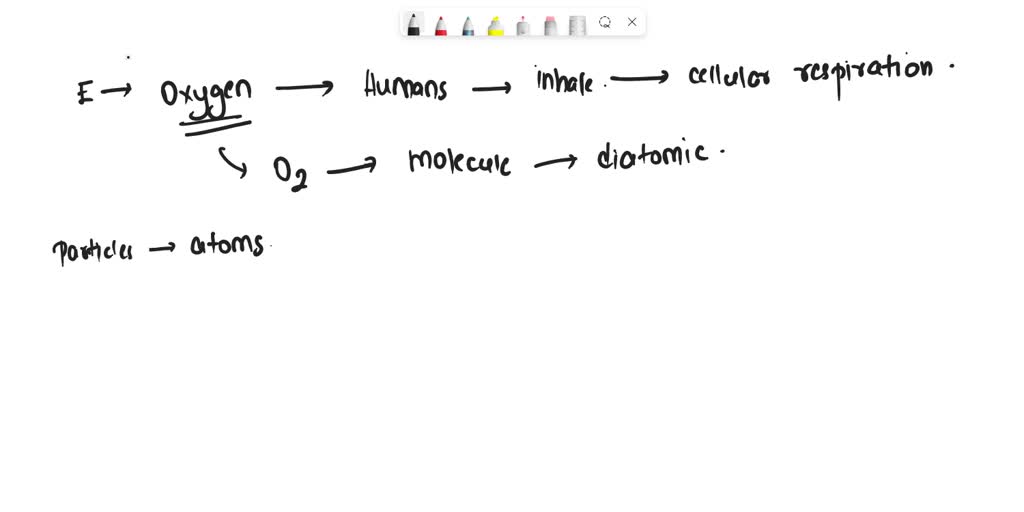 E → Oxygen → Humans → inhale. → cellular respiration.
↳ O2 → molecule → diatomic.
Particles → atoms.